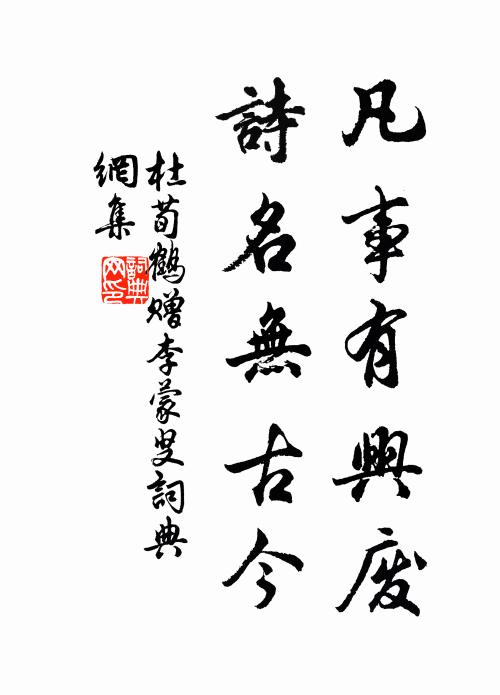 凡事有興废
詩名無古今
杜荀鶴贈李蒙叟詞典
網集
詞典網印